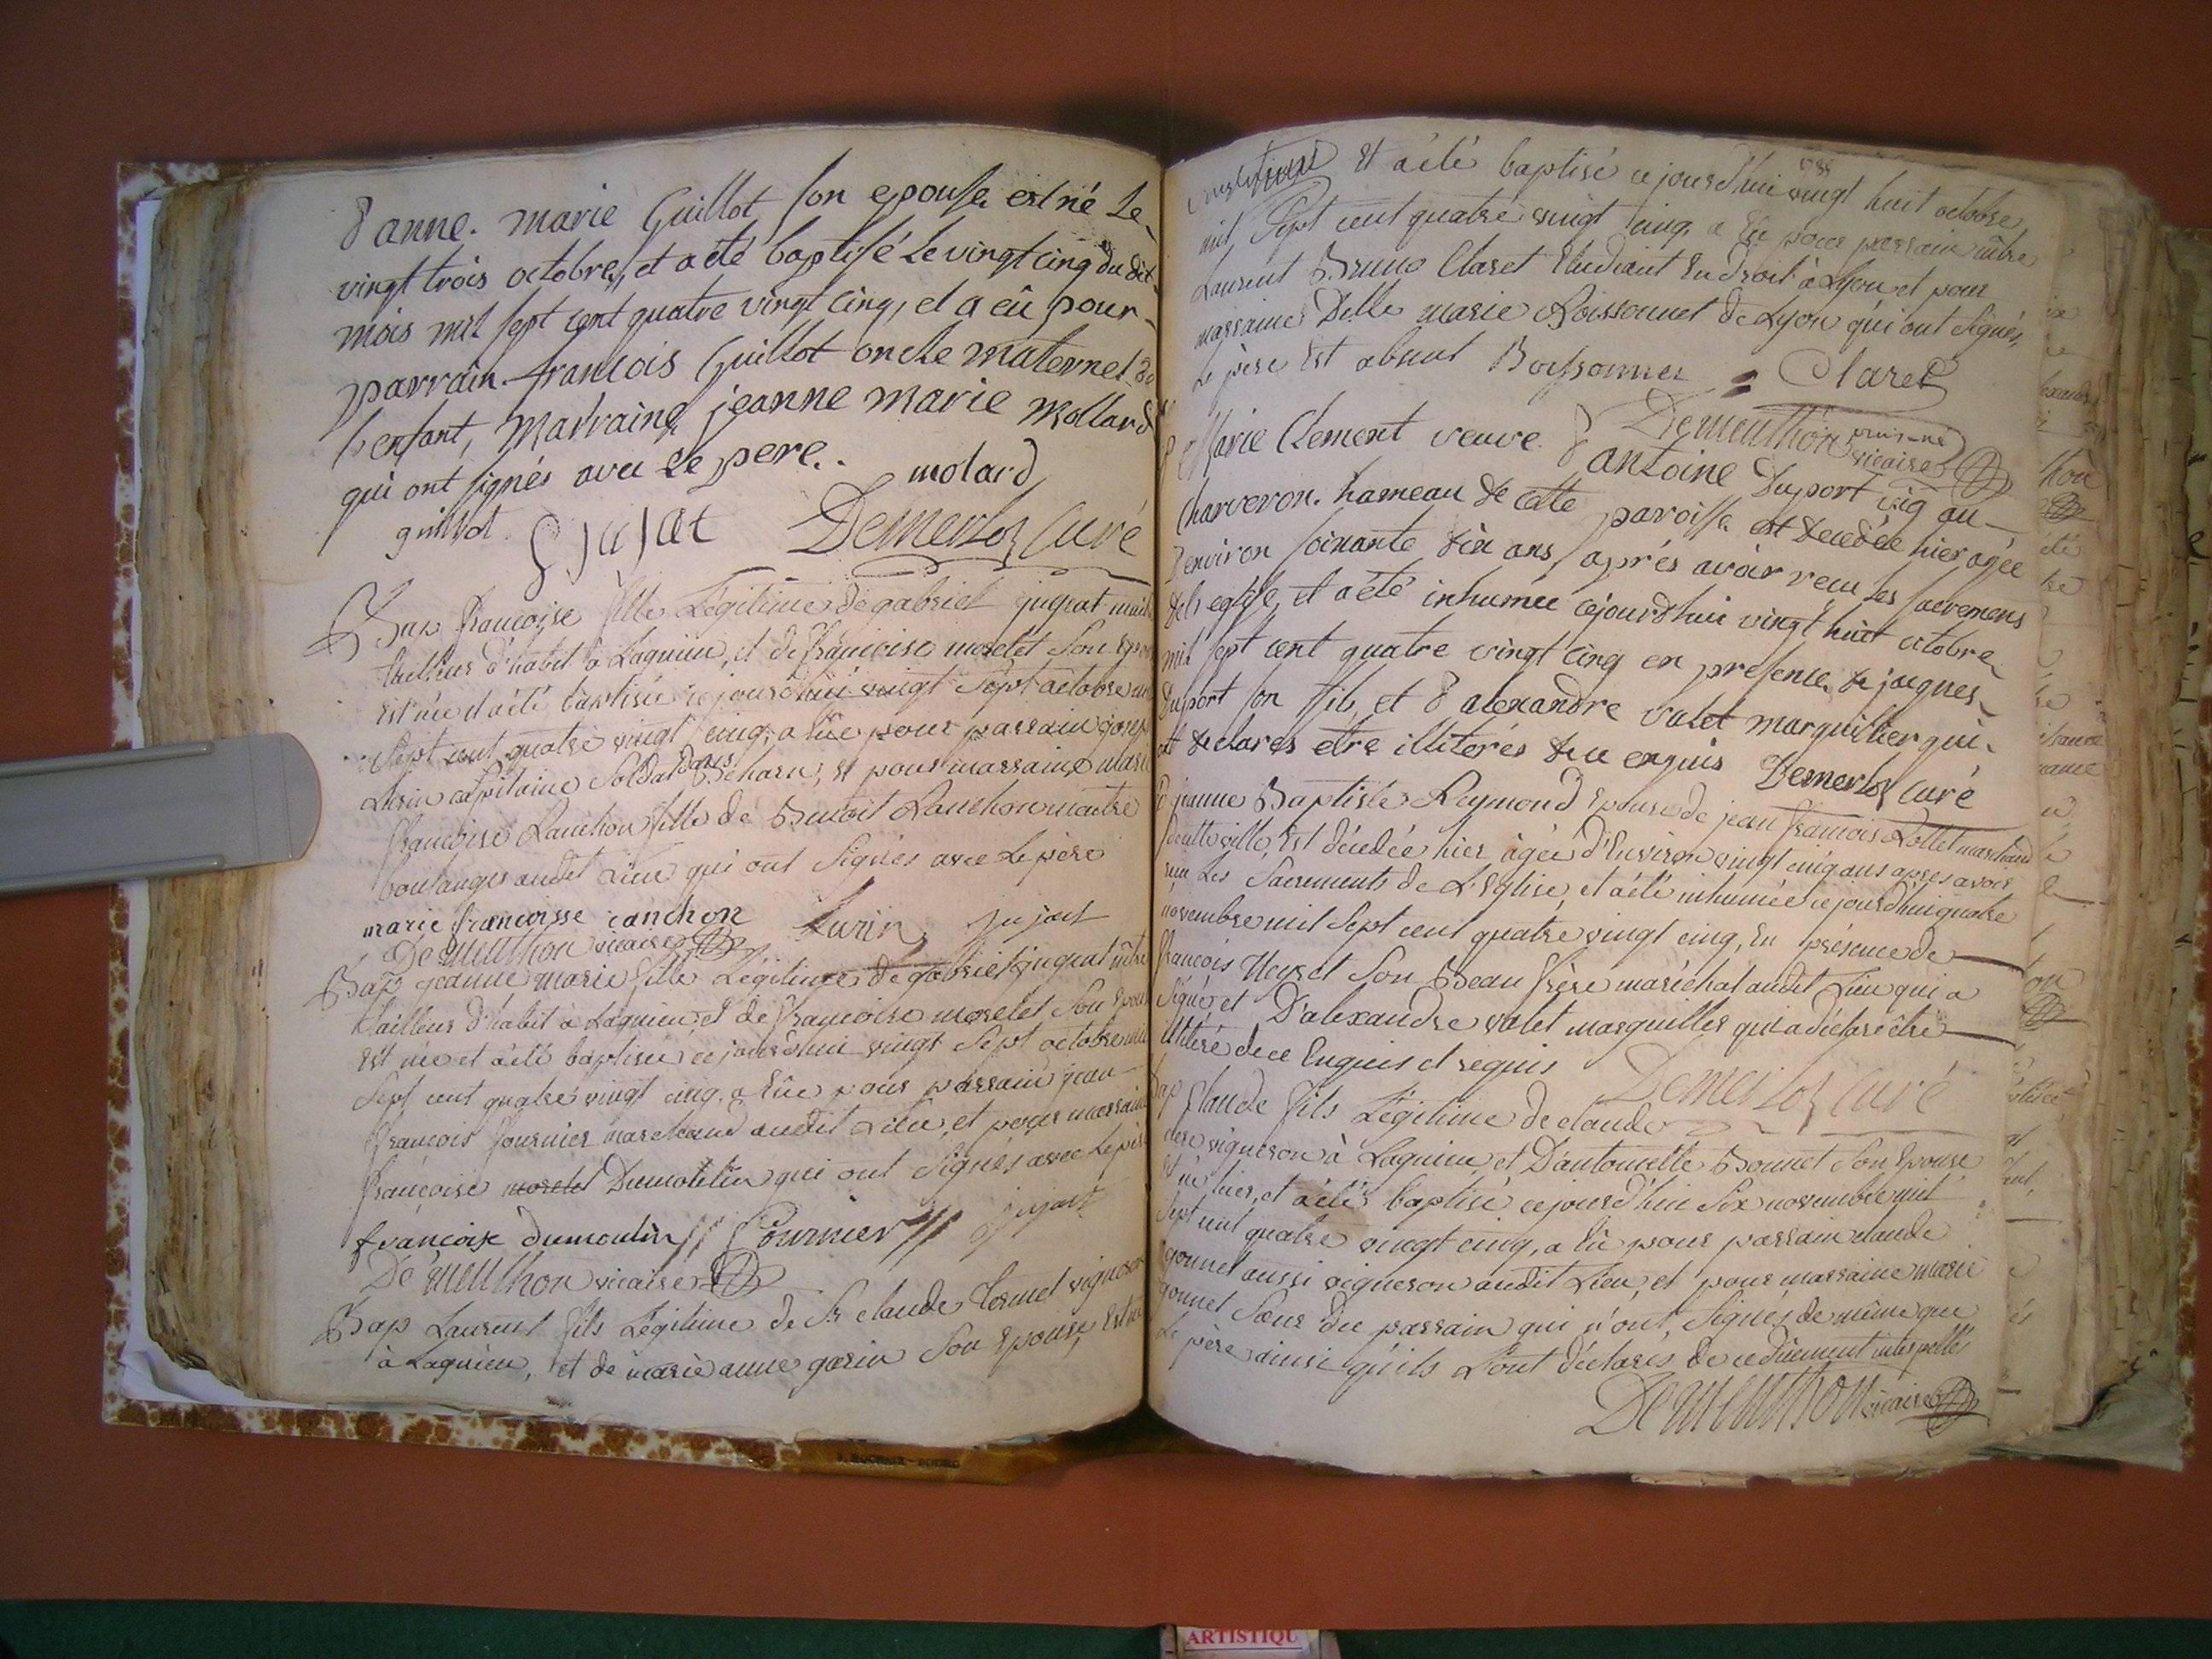 d'anne. marie Guillot son epouse est né Le
vingt trois octobre, et a été baptisé Le vingt cinq du dit
mois mil sept cent quatre vingt cinq, et a eû pour
parrain francois Guillot oncle maternel de
l'enfant, marraine jeanne marie mollard
qui ont signés avec Le pere.. molard
guillot. Demerloz Curé
Bap françoise fille Légitime de gabriel jujeat
tailleur d'habit à Lagnieu, et de françoise morelet Son
Est née et a été baptisée cejourd'hui vingt Sept octobre mil
Sept cent quatre vingt cinq, a Eue pour parrain
Lurin capitaine Soldat dans et pour marraine marie
françoise Lanchon fille de Benoit Lanchon maitre
boulanger audit Lieu qui ont Signés avec Le père
marie francoisse canchon Lurin jujact
Demeuthon vicaire
Bap jeanne marie fille Légitime de gabriel jujeat mître
tailleur d'habit à Lagnieu, et de françoise morelet Son Epouse
Est née et a été baptisée ce jourd'hui vingt Sept octobre mil
Sept cent quatre vingt cinq, a Eûe pour parrain jean
françois fournier marchand audit Lieu, et pour marraine
françoise morelet Dumoulin qui ont Signés avec Le père
francoise dumoulin // fournier // jujact
Demeuthon vicaire
Bap Laurent fils Légitime de Sr claude vigneron
à Lagnieu, et de marie anne garin Son Epouse, Est né
Et a été baptisé ce jourd'hui vingt huit octobre
mil Sept cent quatre vingt cinq, a Eu pour parrain mître
Laurent Bruno Claret Etudiant En droit à Lyon et pour
marraine Delle marie Boissonnet de Lyon qui ont Signés,
Le père Est absent Boissonnet Claret
Demeuthon vicaire
Marie Clement veuve d'antoine Duport vig au
Charveron. hameau de cette paroisse est decedée hier agée
d'environ soixante dix ans, aprés avoir recu les sacremens
de l'eglise, et a été inhumée cejourd'hui vingt huit octobre
mil sept cent quatre vingt cinq en presence de jacques
Duport son fils, et d'alexandre valet marguillier qui
ont declarés etre illiterés de ce enquis Demerloz Curé
jeanne Baptiste Reymond Epouse de jean françois Rollet marchand
de cette ville, Est décedée hier, agée d'Environ vingt cinq ans apres avoir
reçu Les Sacrements de L'Eglise, et a été inhumée cejourd'hui quatre
novembre mil Sept cent quatre vingt cinq, En présence de
françois Son Beau frère maréchal audit Lieu qui a
Signé et D'alexandre valet marguiller qui a déclaré être
illitéré de ce Enquis et requis Demerloz Curé
Bap Claude fils Légitime de claude
vigneron à Lagnieu, et D'antoinette Bonnet Son Epouse
Est né hier, et a été baptisé cejourd'hui Six novembre mil
Sept cent quatre vingt cinq, a Eu pour parrain claude
gonnet aussi vigneron audit Lieu, et pour marraine marie
gonnet Sœur du parrain qui n'ont, Signés de même que
Le père ainsi qu'ils L'ont déclarés de ce dûement interpellés
Demeuthon vicaire
ARTISTIQU